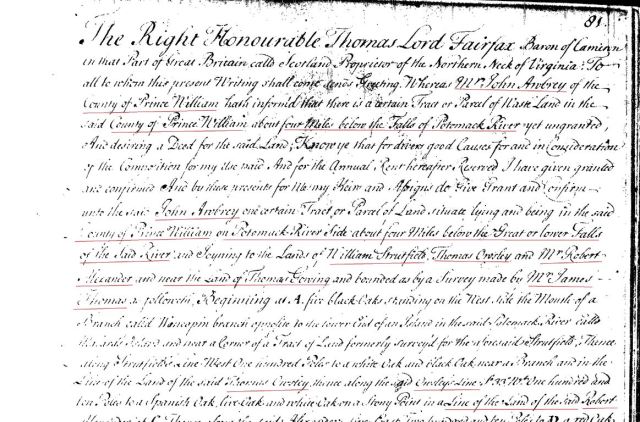 81
The Right Honourable Thomas Lord Fairfax Baron of Cameron
in that Part of Great Britain calld Scotland Proprietor of the Northern Neck of Virginia: To
all to whom this present Writing shall come sends Greeting. Whereas Mr. John Awbrey of the
County of Prince William hath informed that there is a certain Tract or Parcel of Waste Land in the
said County of Prince William about four Miles below the Falls of Potomack River yet ungranted,
And desiring a Deed for the said Land; Know ye that for divers good Causes for and in Consideration
of the Composition for my use paid And for the Annual Rent hereafter Reserved I have given granted
and confirmed And by these presents for Me my Heirs and Assigns do Give Grant and Confirm
unto the said John Awbrey one certain Tract or Parcel of Land situate lying and being in the said
County of Prince William on Potomack River Side about four Miles below the Great or lower Falls
of the Said River and Joyning to the Lands of William Strutfield, Thomas Owsley and Mr. Robert
Alexander and near the Land of Thomas Going and bounded as by a Survey made by Mr. James
Thomas as followeth; Beginning at A. five black Oaks standing on the West Side the Mouth of a
Branch calld Wancopin branch opposite to the lower End of an Island in the said Potomack River calld
Island and near a Corner of a Tract of Land formerly surveyd for the aforesaid Strutfield; Thence
along Strutfields Line West One hundred Poles to a white Oak and black Oak near a Branch and in the
Line of the Land of the said Thomas Owsley, thence along the said Owsleys Line One hundred and
ten Poles to a Spanish Oak, live Oak and white Oak on a Stony Point in a Line of the Land of the Said Robert
Alexander at C. Thence said Alexanders Line East Two hundred and ten Poles to D a red Oak